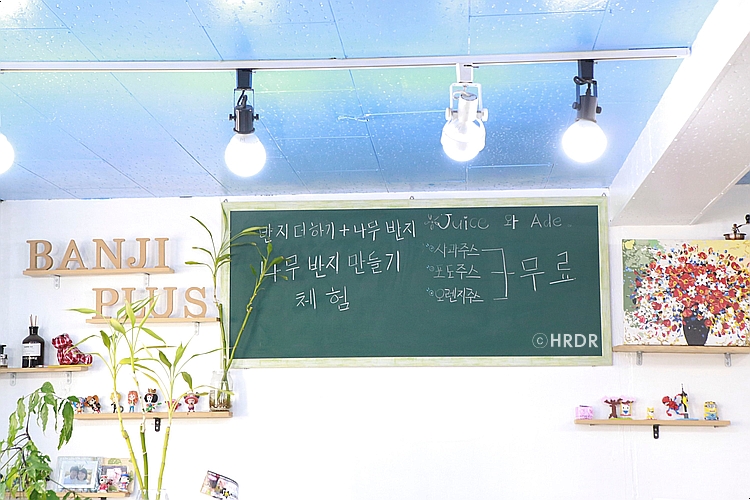 BANJI
PLUS
반지더하기+나무 반지
나무 반지 만들기
체 험
※Juice 와 Ade
사과주스
포도주스
오렌지주스
무료
©HRDR